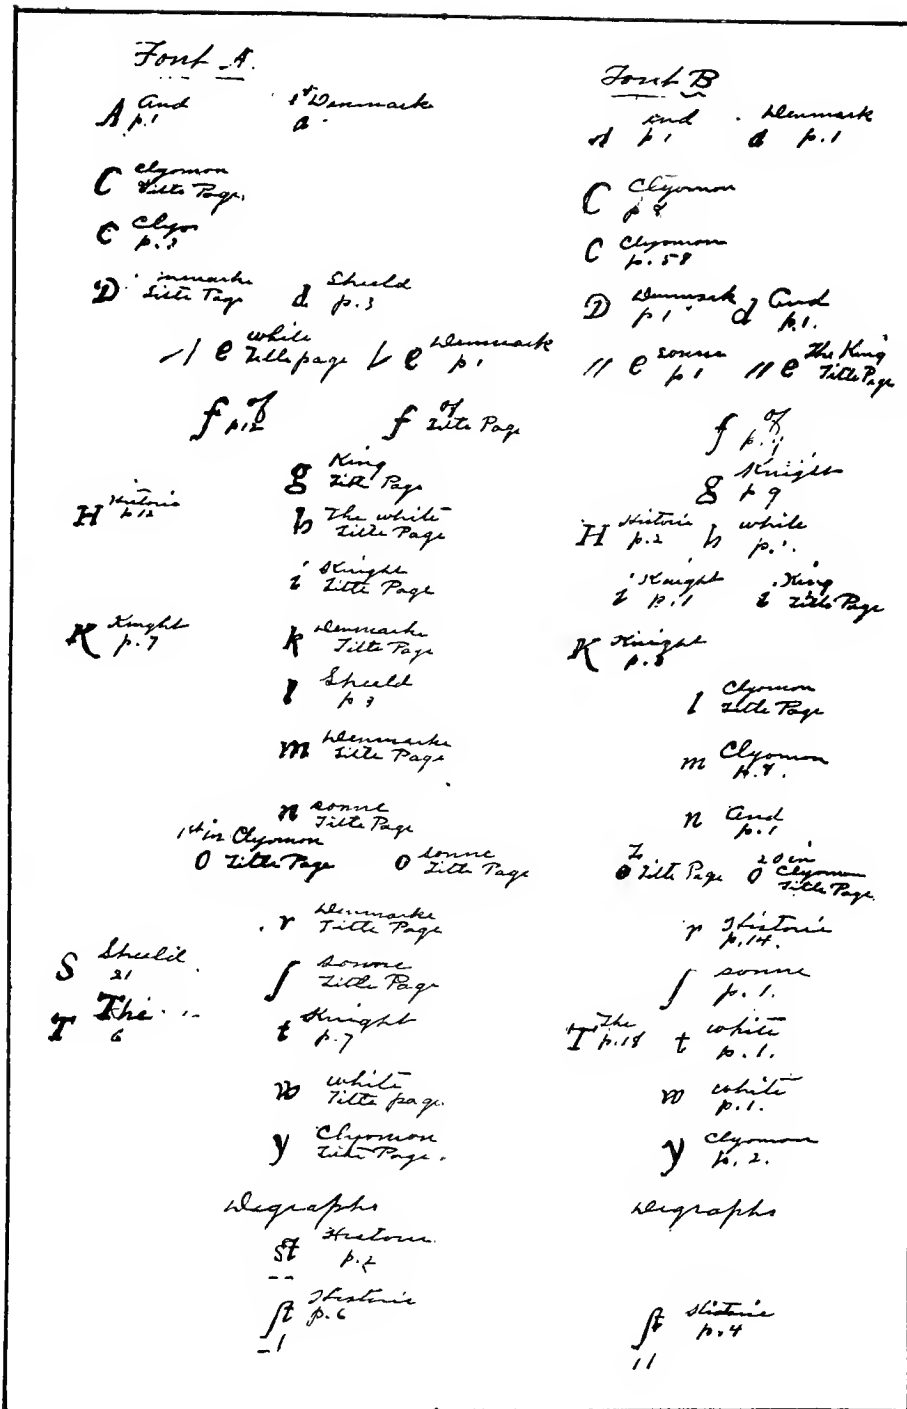 Font A.
A And
p.1
1st Denmark
a
C Clyomon
Title Page.
C Clyo
p.
D
Title Page
d Sheeld
p.3
e white
Title page
e Denmark
p.1
f of
p.12
f of
Title Page
g King
Title Page
H Historie
p.12
h The white
Title Page
i Knight
Title Page
K Knight
p.7
k Denmarke
Title Page
l Sheeld
p 3
m Denmarke
Title Page
n sonne
Title Page
1st in Clyomon
o Title Page
o sonne
Title Page
r Denmarke
Title Page
S Sheeld
21
ſ sonne
Title Page
T The
6
t Knight
p.7
w white
Title page.
y Clyomon
Title Page.
Digraphs
st Historie
p.
ſt Historie
p.6
Font B
A And
p 1
a Denmark
p.1
C Clyomon
p 8
C Clyomon
p.58
D Denmark
p 1
d And
p.1.
// e sonne
p 1
// e The King
Title Page
f of
p.
g Knight
p 9
H Historie
p.2
h white
p.1.
i Knight
p.1
i King
Title Page
K Knight
p.8
l Clyomon
Title Page
m Clyomon
p.8.
n And
p.1
To
o Title Page
2 o in
o Clyomon
Title Page.
r Historie
p.14.
ſ sonne
p.1.
T The
p.18
t white
p.1.
w white
p.1.
y Clyomon
p.2.
Digraphs
ſt Historie
p.4
11